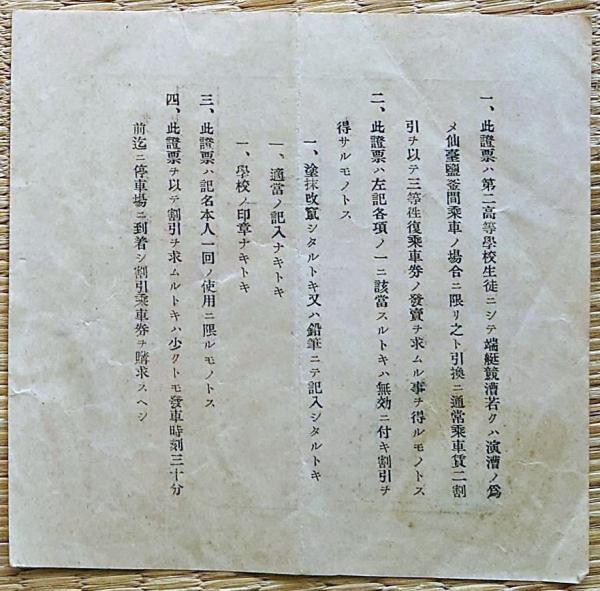 一、此證票ハ第二高等學校生徒ニシテ端艇競漕若クハ演漕ノ爲
メ仙臺鹽釜間乘車ノ場合ニ限リ之ト引換ニ通常乘車賃二割
引チ以テ三等徃復乘車券ノ發賣チ求ムル事チ得ルモノトス
二、此證票ハ左記各項ノ一ニ該當スルトキハ無効ニ付キ割引チ
得サルモノトス
一、塗抹改竄シタルトキ又ハ鉛筆ニテ記入シタルトキ
一、適當ノ記入ナキトキ
一、學校ノ印章ナキトキ
三、此證票ハ記名本人一回ノ使用ニ限ルモノトス
四、此證票チ以テ割引チ求ムルトキハ少クトモ發車時刻三十分
前迄ニ停車場ニ到着シ割引乘車券チ購求スヘシ